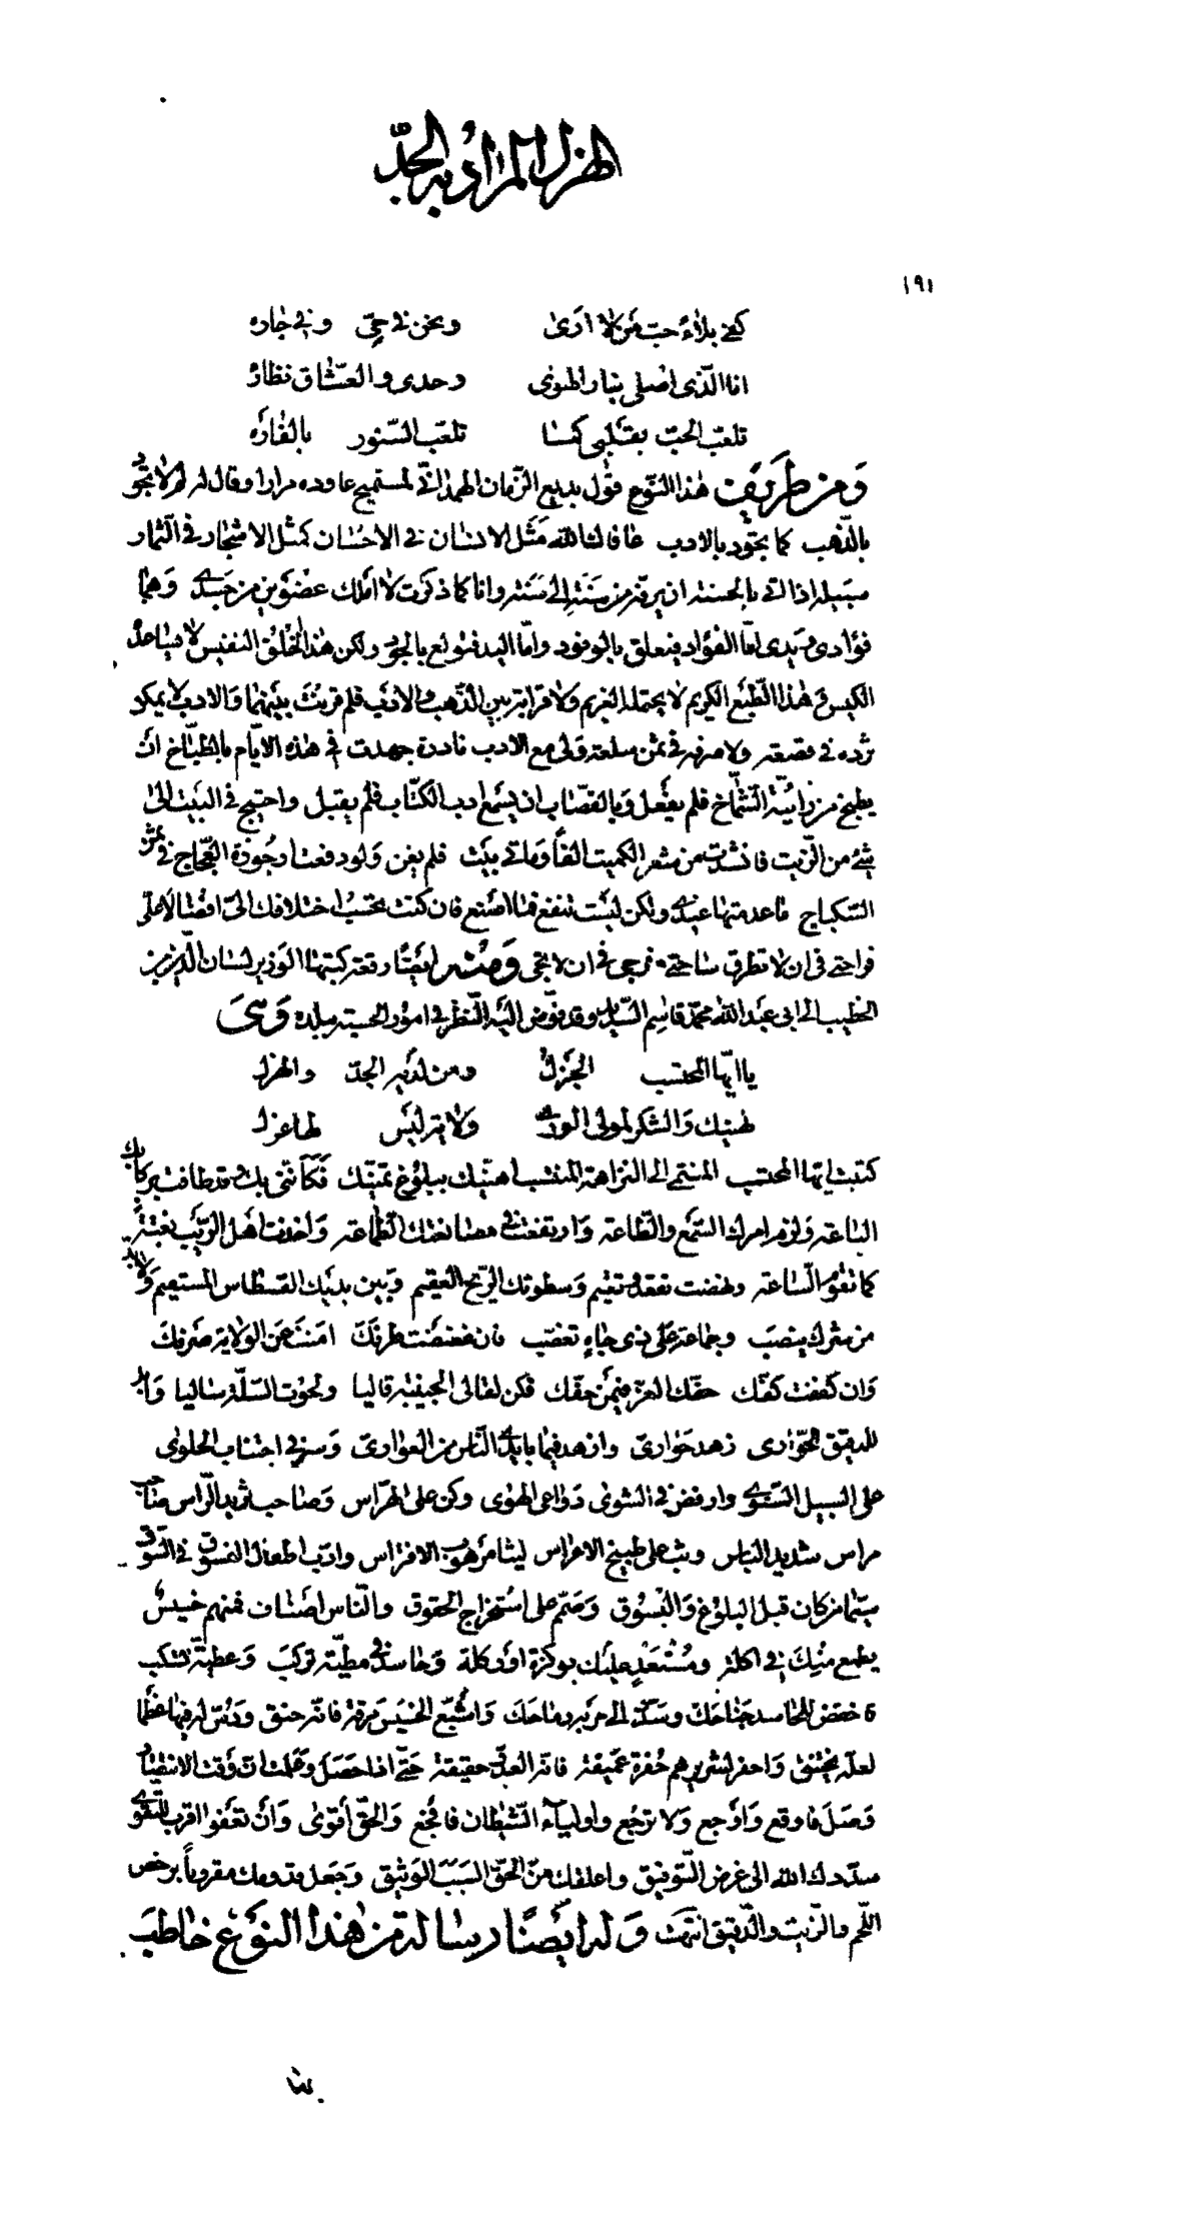 الهزل المراد به الجد
١٩١
كفى بلاء حب من لا أرى ونحن في حي وفي جاره
انا الذي اصلى بنار الهوى وحدي والعشاق نظاره
تلعب الحب بقلبي كما تلعب السنور بالفاره
ومن ظريف هذا النوع قول بديع الزمان الهمذاني لمستميح عاوده مرارا وقال له لم لا تجود
بالذهب كما تجود بالادب عافانا الله مثل الانسان في الاحسان كمثل الاشجار في الثمار
سبيله اذا اتى بالحسنة ان يرفه من سنة الى سنة وانا كما ذكرت لا املك عضوين من جسدي وهما
فؤادي ويدي اما الفؤاد فيعلق بالوفود واما اليد فتولع بالجود ولكن هذا الخلق النفيس لا يساعده
الكيس وهذا الطبع الكريم لا يحتمله الغريم ولا قرابة بين الذهب والادب فلم قرنت بينهما والادب لا يمكن
ثرده في قصعة ولا صرفه في ثمن سلعة ولي مع الادب نادرة جهدت في هذه الايام بالطباخ ان
يطبخ من زائية الشماخ فلم يفعل وبالقصاب ان يسمع ادب الكتاب فلم يقبل واحتيج في البيت الى
شئ من الزيت فانشدت من شعر الكميت الفا ومأتي بيت فلم يغن ولو دفعت ارجوزة العجاج في ثمن
السكباج ما عدمتها عندي ولكن ليست تنفع فما اصنع فان كنت تحسب اختلافك الى افضالا علي
فراحتي في ان لا تطرق ساحتي وفرجي في ان لا تجي ومنه ايضا رقعة كتبها الوزير لسان الدين بن
الخطيب الى ابي عبد الله محمد قاسم الشديد وقد فوض اليه النظر في امور الحسبة ببلده وهي
يا ايها المحتسب الجزل ومن لديه الجد والهزل
لهنيك والشكر لمولى الورى ولاية ليس لها عزل
كتبت ايها المحتسب المنتمي الى النزاهة المنتسب اهنيك ببلوغ تمنيك فكأنني بك وقد طافت بركابك
الباعة ولزم امرك السمع والطاعة وارتفعت في مصانعتك الطماعة واخذت اهل الريب بغتة
كما تقوم الساعة ونهضت تقعد وتقيم وسطوتك الريح العقيم وبين يديك القسطاس المستقيم ولا بد
من شرك ينصب وجماعة على ذي جاه تعصب فان غضضت طرفك امنت عن الولاية صرفك
وان كففت كفك حفك العز فيمن حفك فكن لقالي الجيفية قاليا ولحوت السلة ساليا وابد
للدقيق الحواري زهد حواري وازهد فيما بايدي الناس من العواري وسر في اجتناب الحلواء
على السبيل السوي وارفض في الشوى دواعي الهوى وكن على الهراس وصاحب ثريد الراس صاحب
مراس شديد الباس وثب على طبيخ الاعراس ليثا مرهوب الافتراس وادب اطفال الفسوق في السوق
سيما من كان قبل البلوغ والبسوق وصمم على استخراج الحقوق والناس اصناف فمنهم خسيس
يطمع منك في اكلة ومستعد عليك بوكزة او ركلة وحاسد في مطية تركب وعطية تسكب
فاخفض للحاسد جناحك وسدد الى حربه رماحك واشبع الخسيس مرقة فانه حنق ودس له فيها عظما
لعله يختنق واحفر لشريرهم حفرة عميقة فانه العدو حقيقة حتى اذا حصل وعلمت ان وقت الانتصار
وصل فاوقع واوجع ولا ترجع واولياء الشيطان فافجع والحق اقوى وان تعفو اقرب للتقوى
سددك الله الى غرض التوفيق واعلقك من الحق السبب الوثيق وجعل قدومك مقرونا برخص
اللحم والزيت والدقيق انتهت وله ايضا رسالة من هذا النوع خاطب